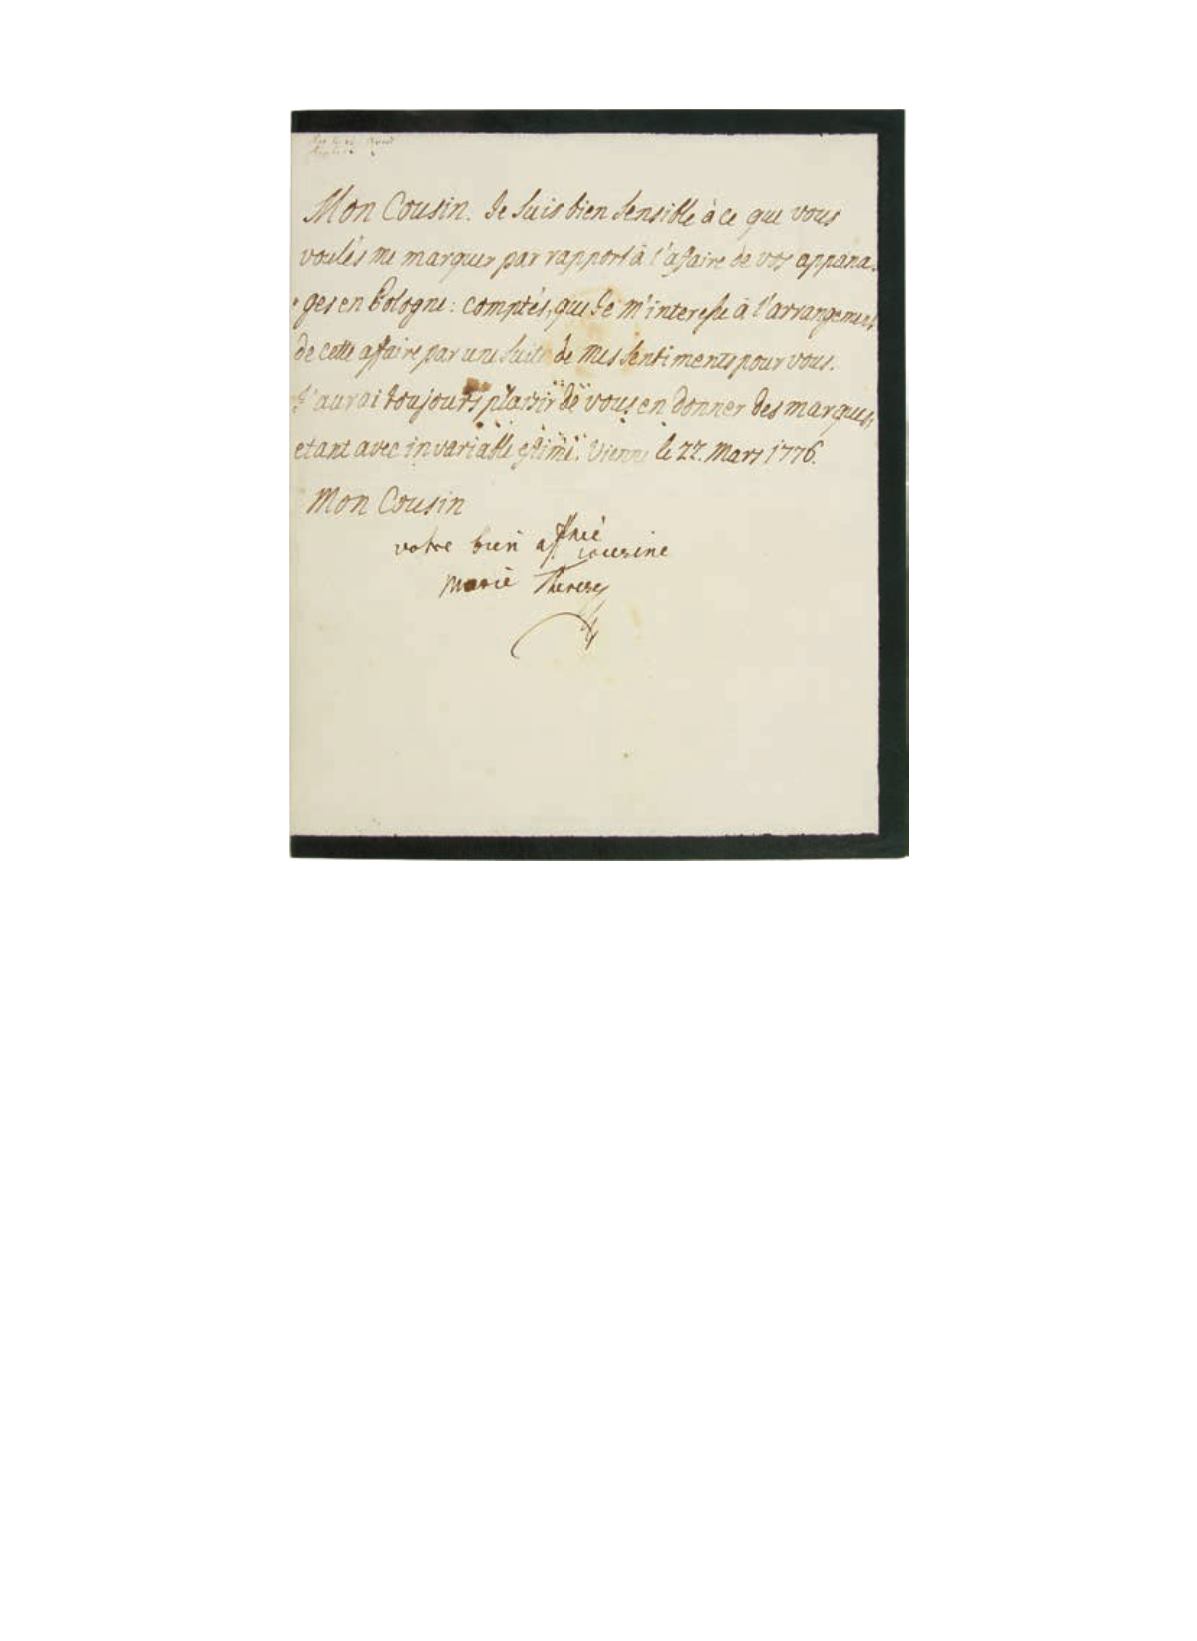 Mon Cousin. Je suis bien sensible à ce que vous
voulés me marquer par rapport à l'affaire de vos appana-
-ges en Pologne: comptés, que Je m'interesse à l'arrangement
de cette affaire par une suite de mes sentiments pour vous.
J'aurai toujours plaisir de vous en donner des marques,
etant avec invariable estime. Vienne le 22. Mars 1776.
Mon Cousin
votre bien affnée cousine
Marie Therese